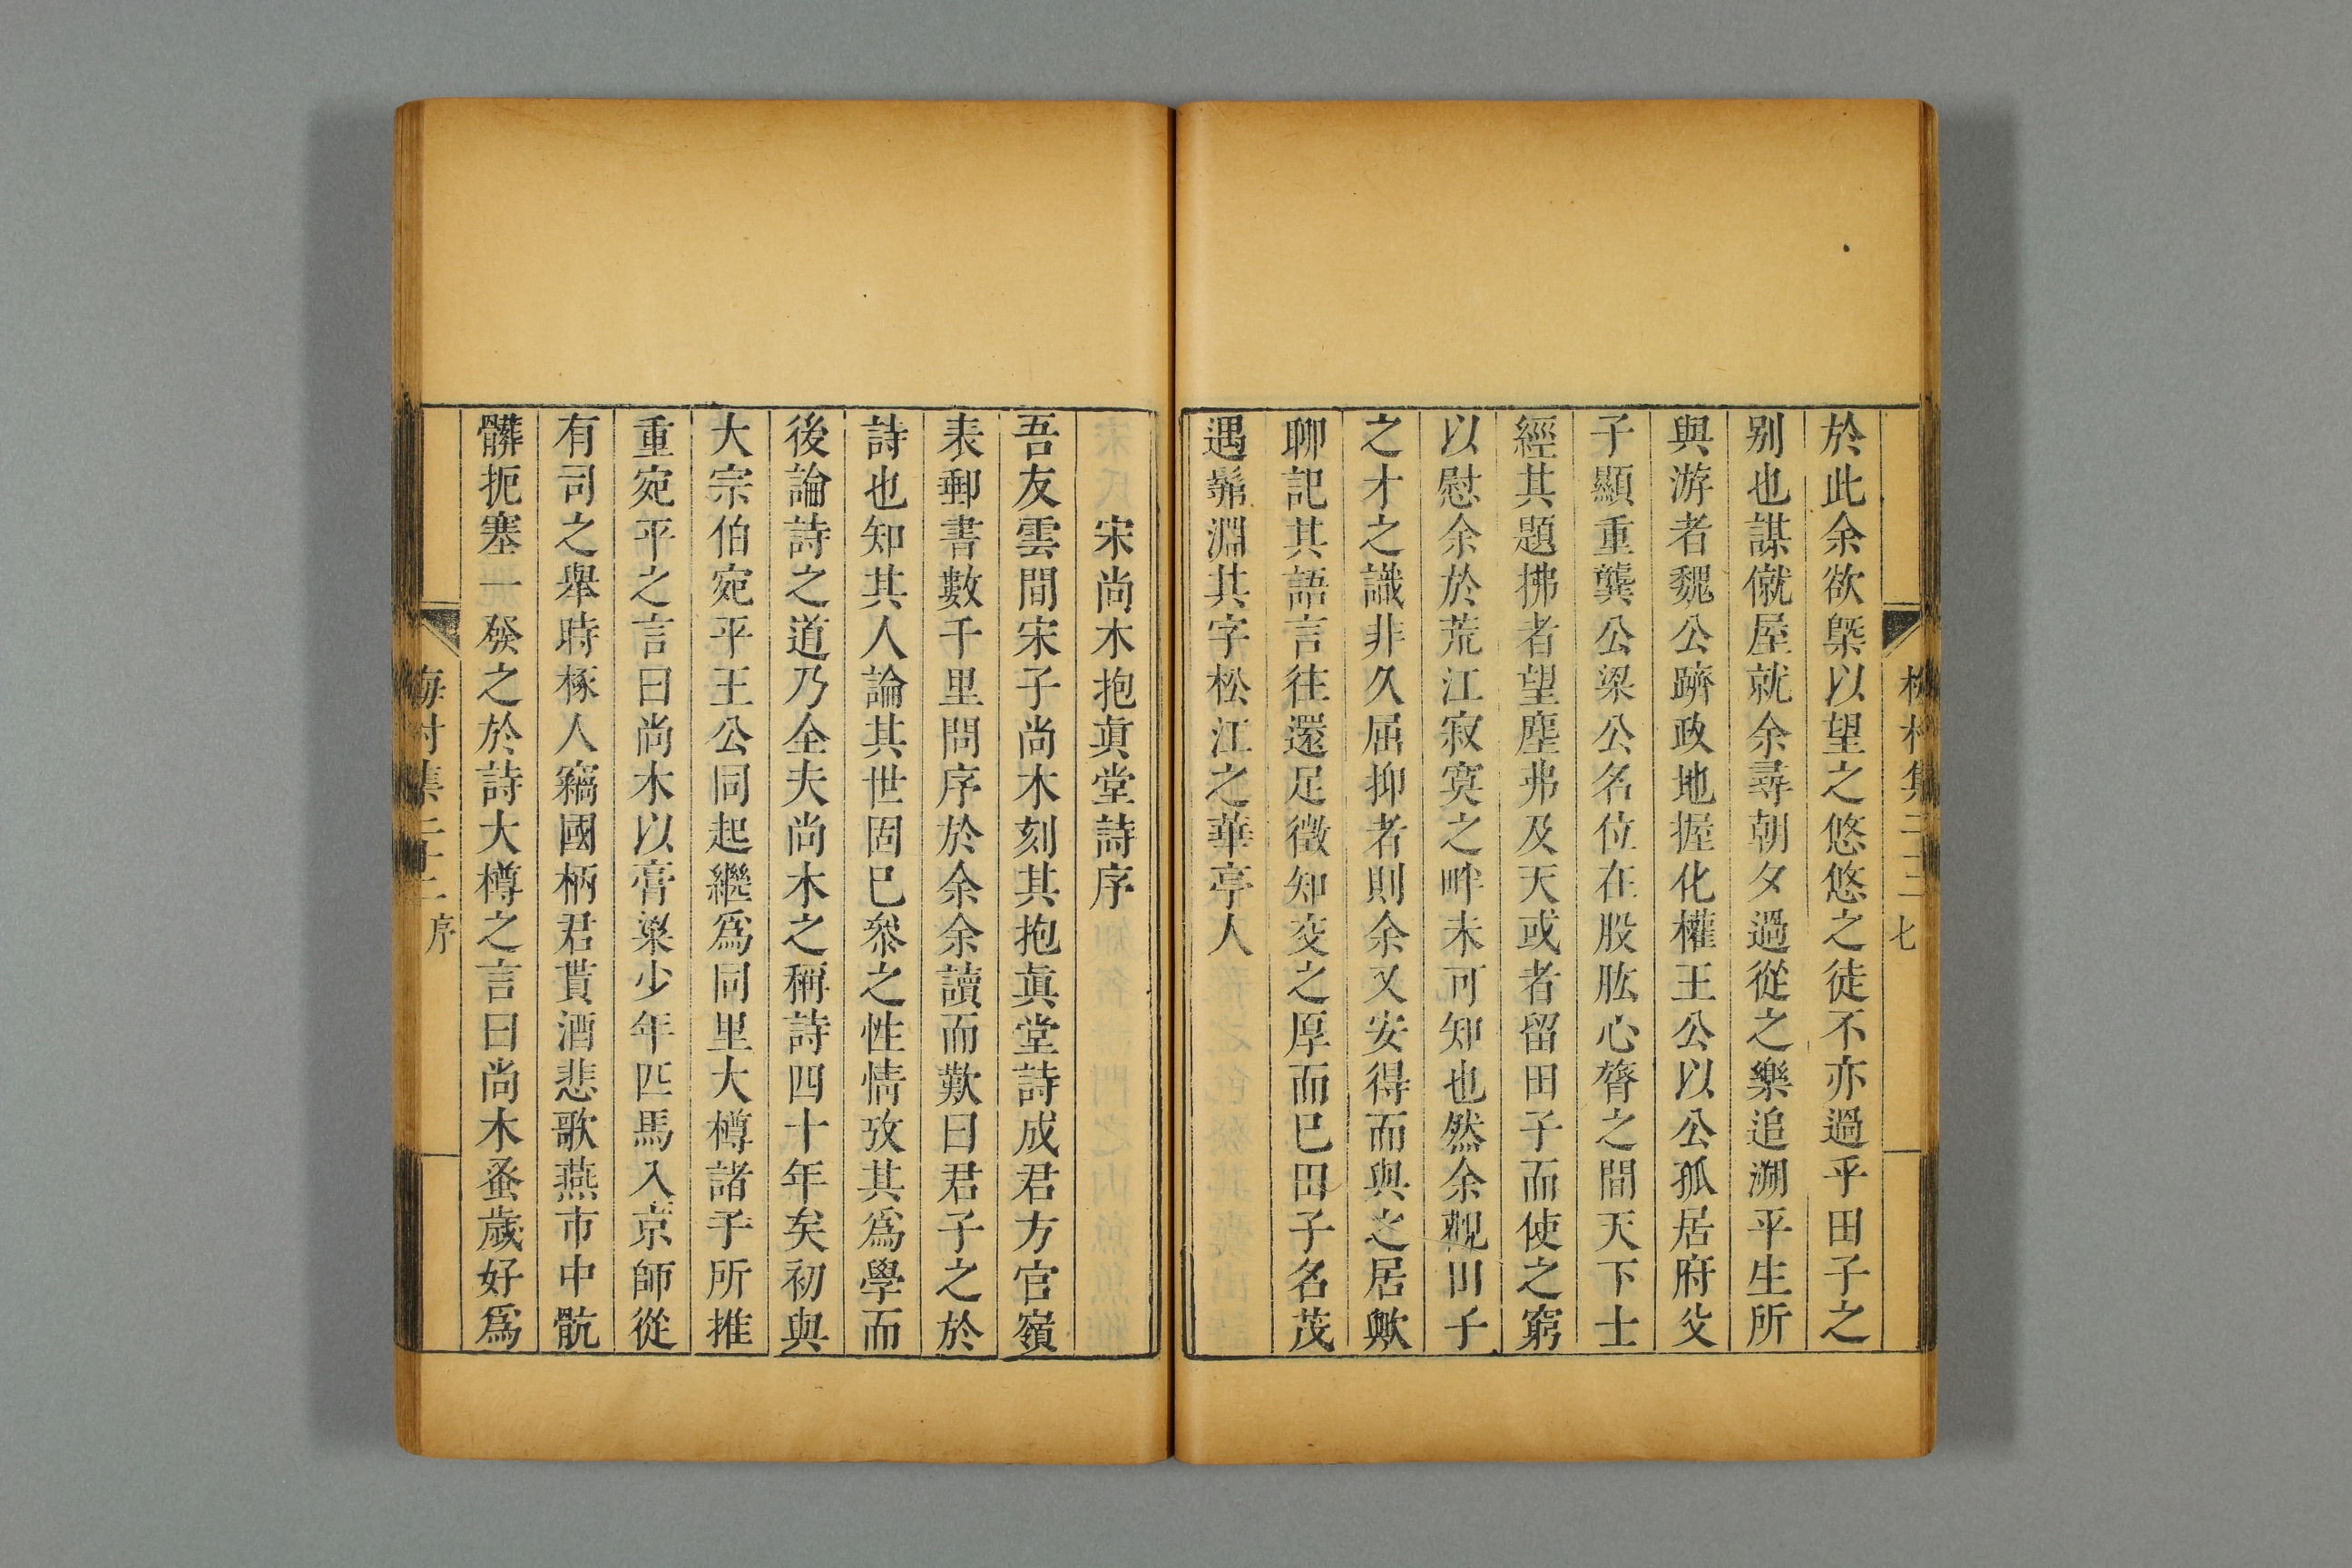 於此余欲槩以望之悠悠之徒不亦過乎田子之
别也謀僦屋就余尋朝夕過從之樂追溯平生所
與游者魏公躋政地握化權王公以公孤居府父
子顯重龔公梁公名位在股肱心膂之間天下士
經其題拂者望塵弗及天或者留田子而使之窮
以慰余於荒江寂寞之畔未可知也然余觀田子
之才之識非久屈抑者則余又安得而與之居歟
聊記其語言往還足徵知交之厚而已田子名茂
遇髴淵其字松江之華亭人
宋尚木抱眞堂詩序
吾友雲間宋子尚木刻其抱眞堂詩成君方官嶺
表郵書數千里問序於余余讀而歎曰君子之於
詩也知其人論其世固已叅之性情攷其爲學而
後論詩之道乃全夫尚木之稱詩四十年矣初與
大宗伯宛平王公同起繼爲同里大樽諸子所推
重宛平之言曰尚木以膏粱少年匹馬入京師從
有司之舉時椓人竊國柄君貰酒悲歌燕市中骯
髒扼塞一發之於詩大樽之言曰尚木蚤歲好爲
序